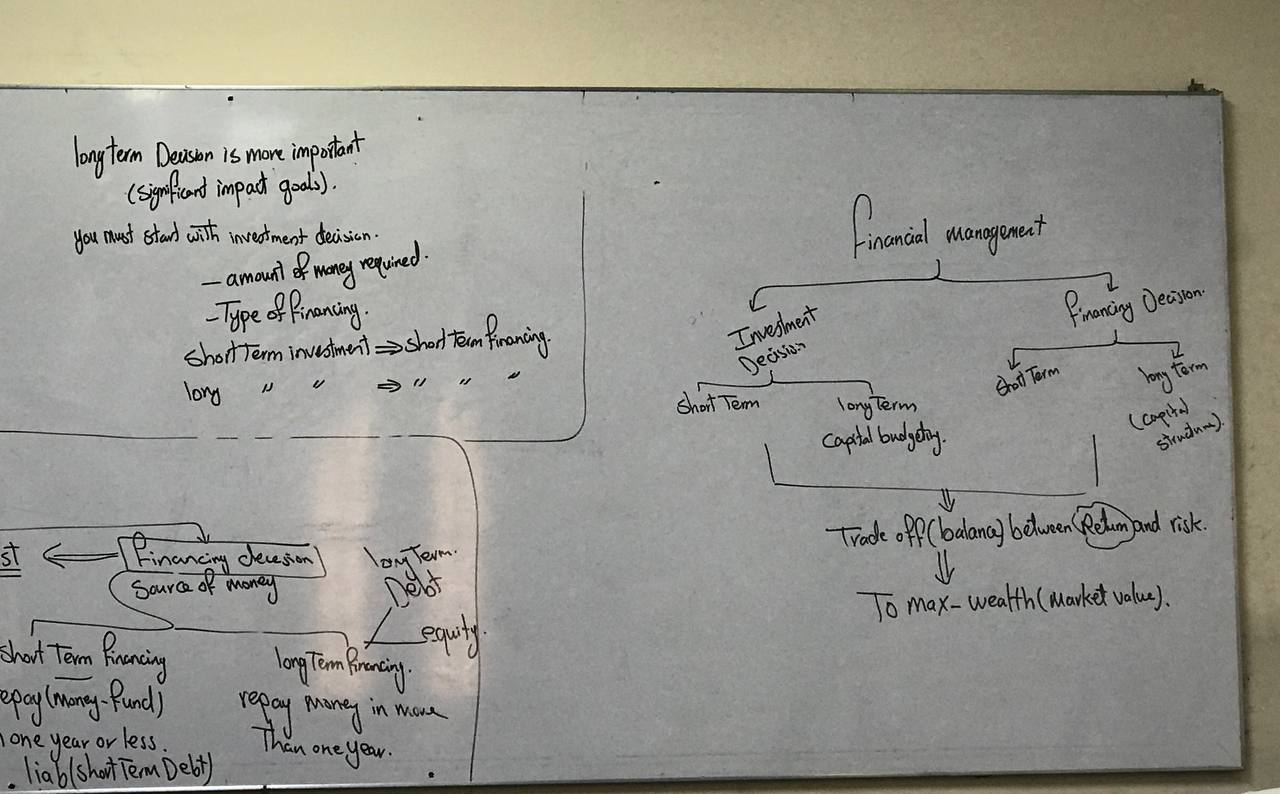 long term Decision is more important
(significant impact goals).
you must start with investment decision.
– amount of money required.
– Type of financing.
Short Term investment ⇒ short Term financing.
long " " ⇒ " " "
st ⇐ Financing decesion
Source of money
long Term.
Debt
equity.
Short Term financing
epay (money-fund)
one year or less.
. liab (short Term Debt)
long Term financing.
repay money in more
Than one year.
Financial management
Investment
Decision
Short Term
long Term
Capital budgeting.
Financing Decision.
Short Term
long Term
(capital
structure).
Trade off (balance) between Return and risk.
⇓
To max– wealth (market value).